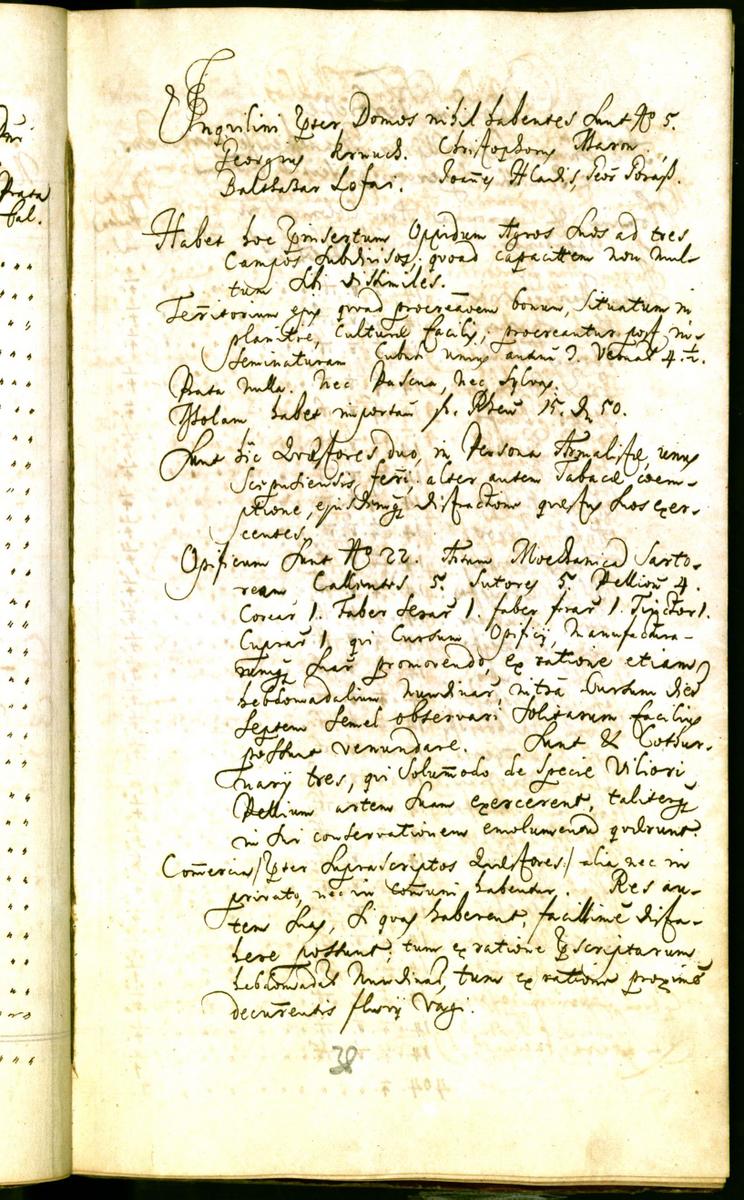 Dni
Prata
fal.
Inquilini Pter Domos nihil habentes sunt No 5.
Georgius Krnuch. Christophorus Maron.
Balthasar Lofai. Joan̄es Hladis,
Habet hoc Oppidum Agros suos ad tres
Campos subdivisos, quoad capacittem non mul-
tum sibi dissimiles.
Territorium ejus quoad procrea͠oem bonum, situatum in
planitie, culturæ facilis, procreantur post in-
seminaturam Cubuli unius autum̄ 3. Vernat 4 ½.
Prata nulla. Nec Pascua, nec sylvas.
Molam habet important fl. Rhen̄ 15. Xr 50.
Sunt hic Quæstores duo, in Persona Armalistæ, unus
Scepusiensis, ferri, alter autem Tabacæ coem-
ptione, ejusdemq distractione quæstus suos exer-
centes.
Opificum sunt No 22. Artem Mechanica Sarto-
ream Callentes 5. Sutores 5 Pellion 4.
Coriar 1. Faber serar 1. faber ferrar 1. Tinctor 1.
Cuprar 1 qui Cursum Opificij, Manufactura-
rumq suar promovendo, ex ratione etiam
hebdomadalium Nundinar, intra Cursum Dier
septem semel observari solitarum facilius
possunt venundare. Sunt & Cothur-
narij tres, qui solum̄odo de specie Viliori
Pellium artem suam exercerent, taliterq
in sui conservationem emolumenta quærunt.
Com̄ercia /:Pter suprascriptos Quæstores:/ alia nec in
privato, nec in com̄uni habentur. Res au-
tem suas, si quas haberent, facillime distra-
here possunt, tum ex ratione Pscriptarum
hebdomadal Nundinar, tum ex ratione proxime
decurrentis fluvij Vagi.
38